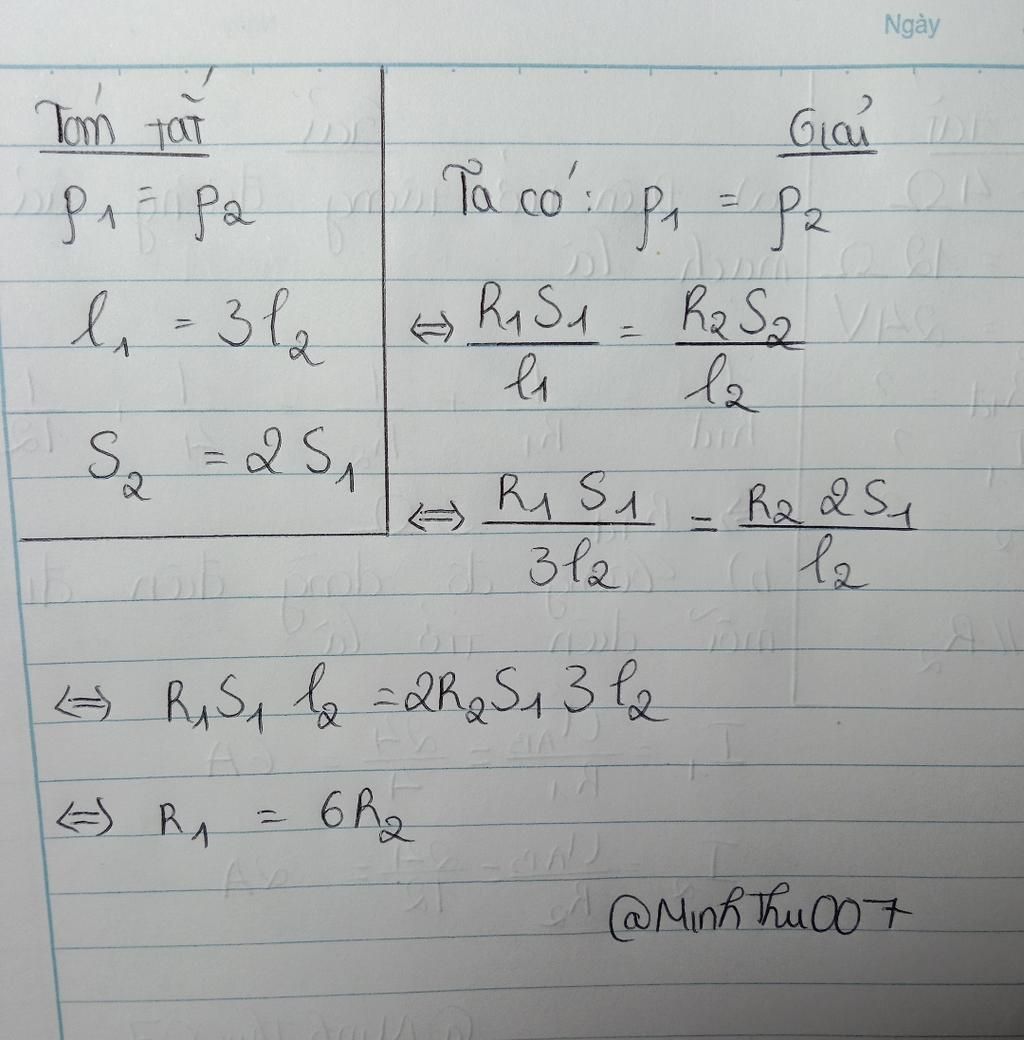 Ngày
Tóm tắt
ρ1 = ρ2
l1 = 3l2
S2 = 2S1
Giải
Ta có: ρ1 = ρ2
⇔ R1S1/l1 = R2S2/l2
⇔ R1 S1/3l2 = R2 2S1/l2
⇔ R1S1 l2 = 2R2S1 3l2
⇔ R1 = 6R2
@MinhThu007